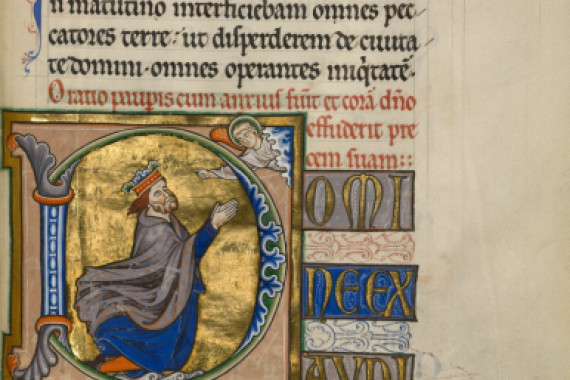 n matutino interficiebam omnes pec
catores terre: ut disperderem de ciuita
te domini. omnes operantes iniq̇tatē.
Oratio paupis cum anxius fuit et corā dn̄o
effuderit pre
cem suam::
DOMI
NE EX
AUDI